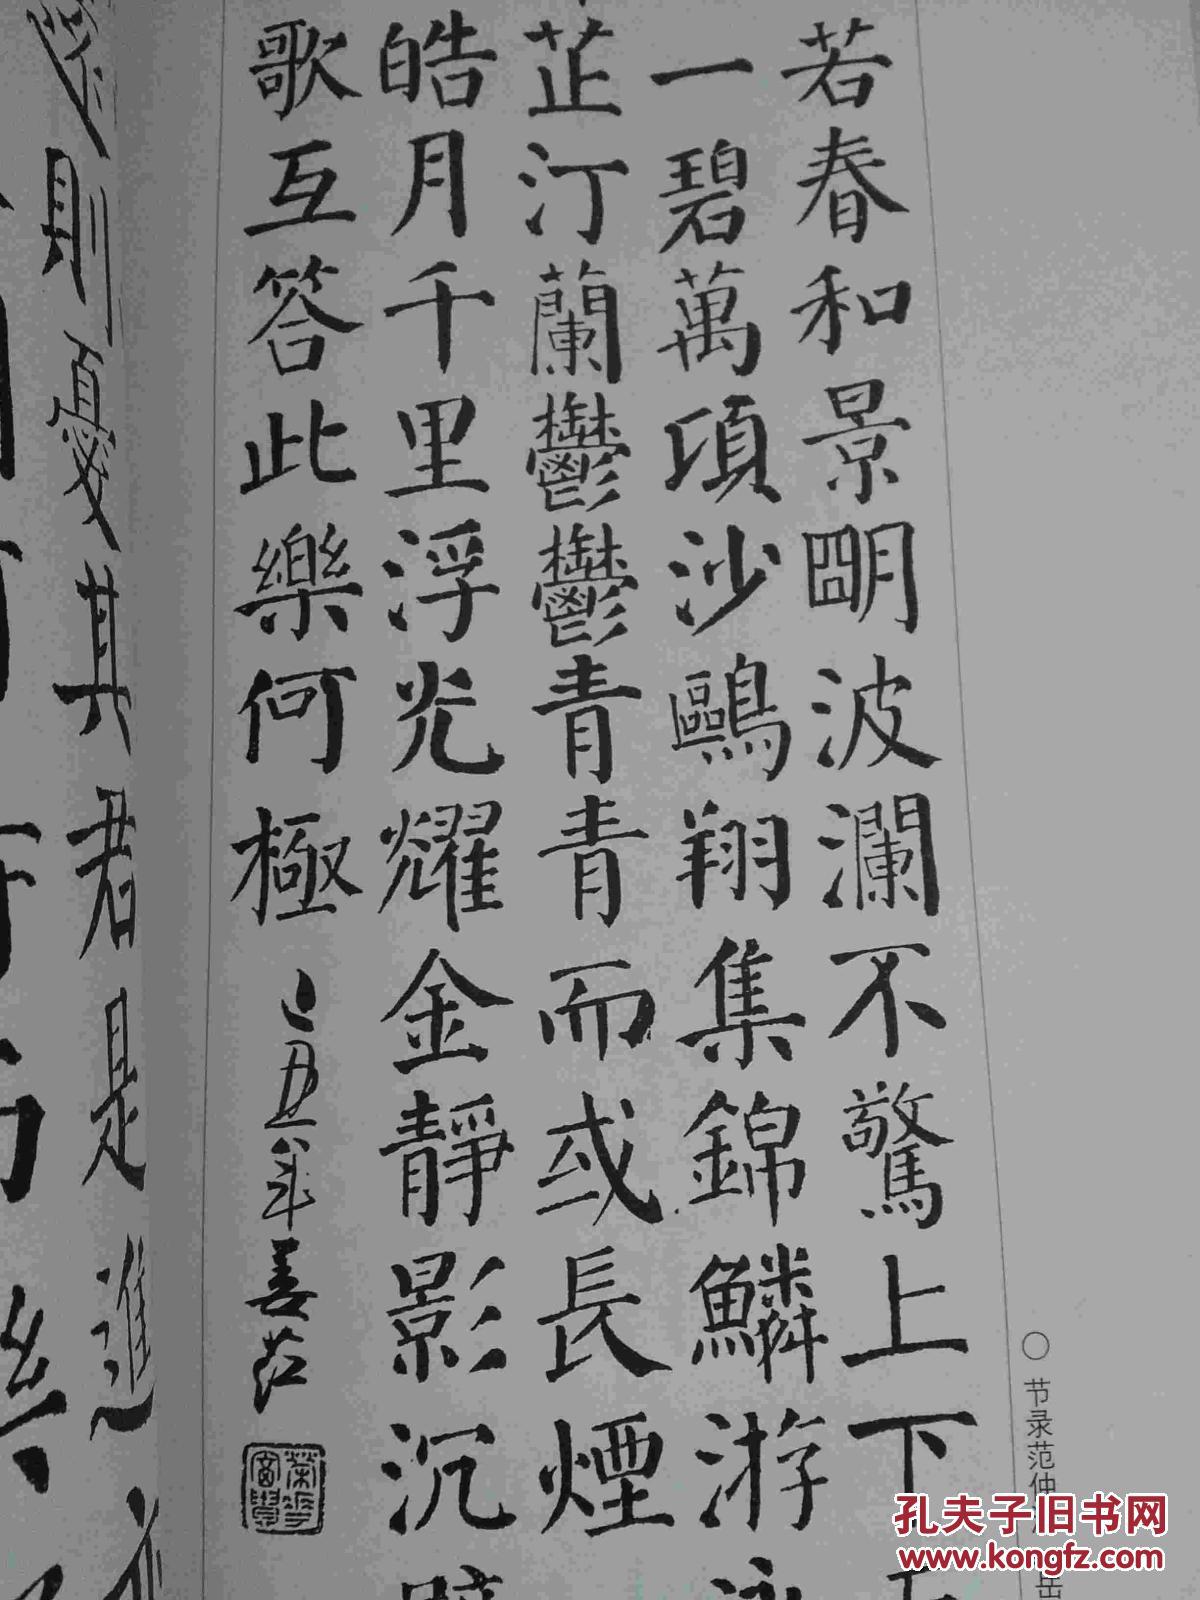 ○ 节录范仲
岳
若春和景朙波瀾不驚上下
一碧萬頃沙鷗翔集錦鱗游
芷汀蘭鬱鬱青青而或長煙
皓月千里浮光耀金靜影沉
歌互答此樂何極
己丑年姜
則憂其君是進
孔夫子旧书网
www.kongfz.com